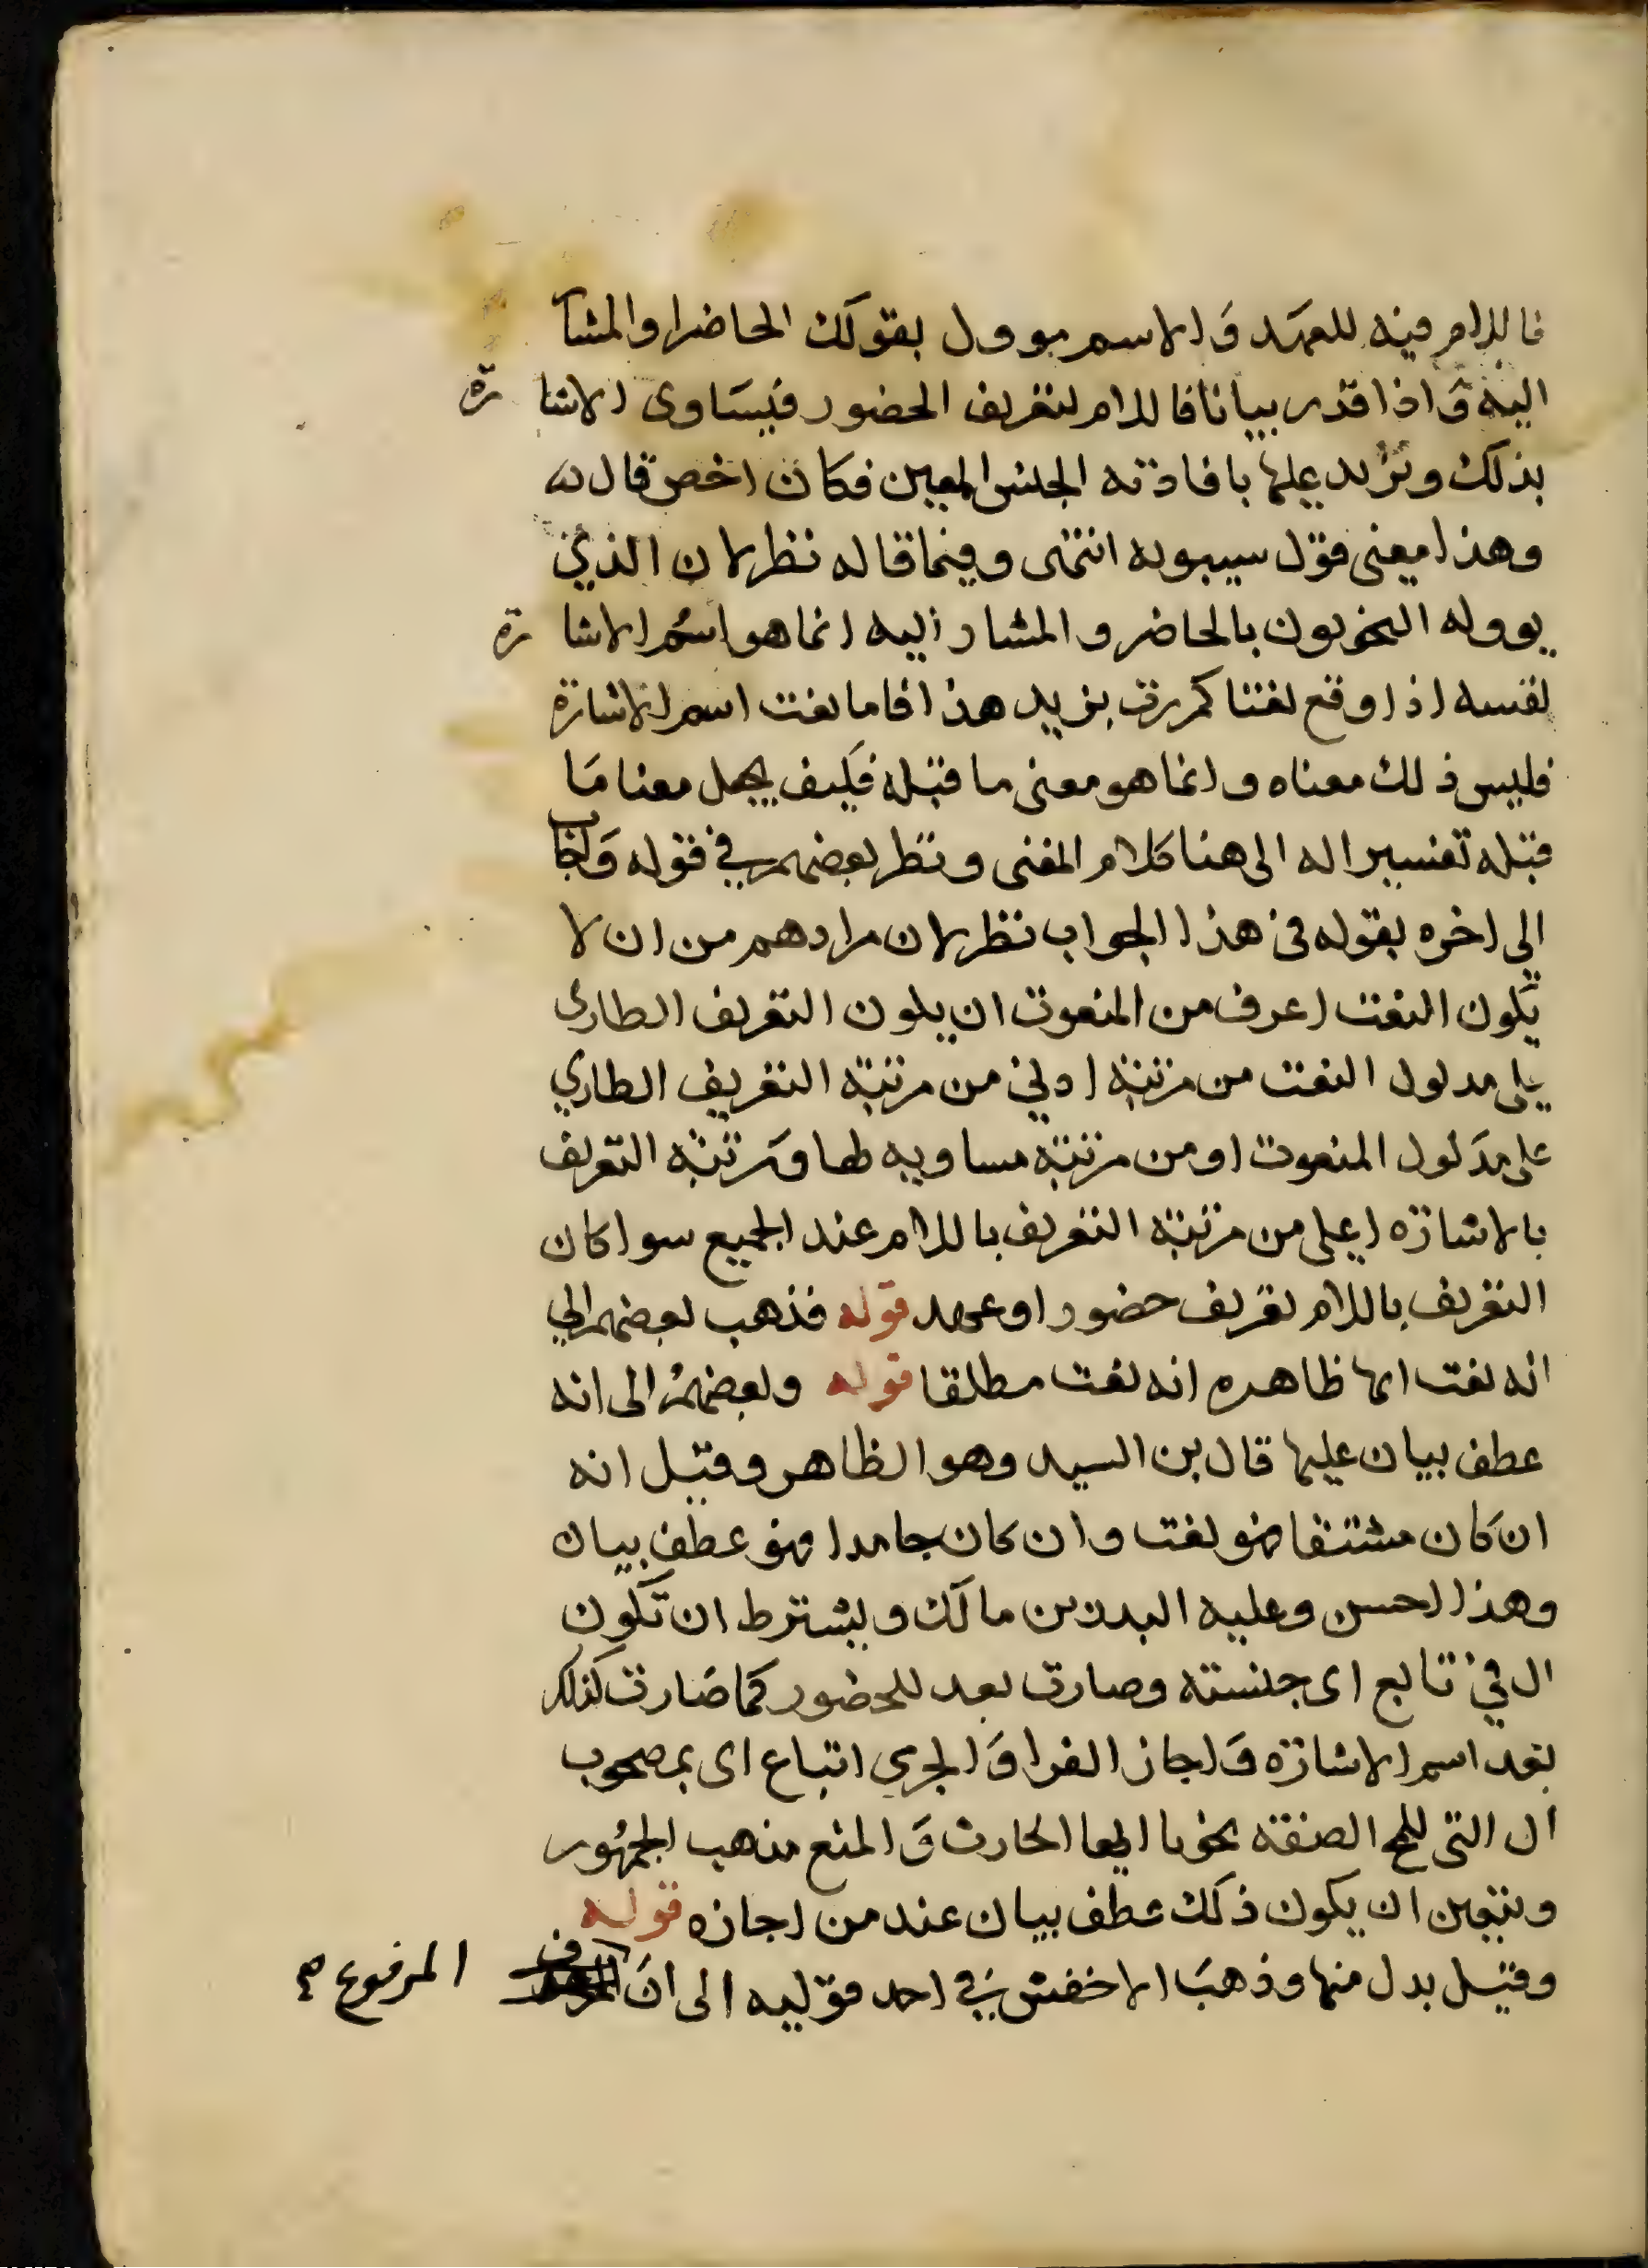 فاللام فيه للعهد والاسم موول بقولك الحاضر او المشا
اليه واذا قدر بيانا فاللام لتعريف الحضور فيساوى الاشارة
بذلك ويزيد عليها بافادته الجنس المعين فكان اخص قال
وهذا معنى قول سيبويه انتهى وفيما قاله نظر لان الذي
يووله النحويون بالحاضر والمشار اليه انما هو اسم الاشارة
نفسه اذا وقع نعتا كمررت بزيد هذا فاما نعت اسم الاشارة
فليس ذلك معناه وانما هو معنى ما قبله فكيف يجعل معنا ما
قبله تفسيرا له الى هنا كلام المغنى ونظر بعضهم في قوله واجاب
الى اخره بقوله في هذا الجواب نظر لان مرادهم من ان لا
يكون النعت اعرف من المنعوت ان يكون التعريف الطارى
على مدلول النعت من مرتبة ادني من مرتبة التعريف الطاري
على مدلول المنعوت او من مرتبة مساويه لها ومرتبة التعريف
بالاشارة اعلى من مرتبة التعريف باللام عند الجميع سوا كان
التعريف باللام تعريف حضور او عهد قوله فذهب بعضهم الي
انه نعت ايها ظاهره انه نعت مطلقا قوله وبعضهم الى انه
عطف بيان عليها قال بن السيد وهو الظاهر وقيل انه
ان كان مشتقا فهو نعت وان كان جامدا فهو عطف بيان
وهذا احسن وعليه البدر بن مالك ويشترط ان تكون
ال في تابع اى جنسته وصارت بعد للحضور كما صارت كذلك
بعد اسم الاشارة واجاز الفرا والجرمى اتباع اى بمصحوب
ال التى للمح الصفة نحو يا ايها الحارث والمنع مذهب الجمهور
ويتعين ان يكون ذلك عطف بيان عند من اجازه قوله
وقيل بدل منها وذهب الاخفش في احد قوليه الى ان المرفوع صح